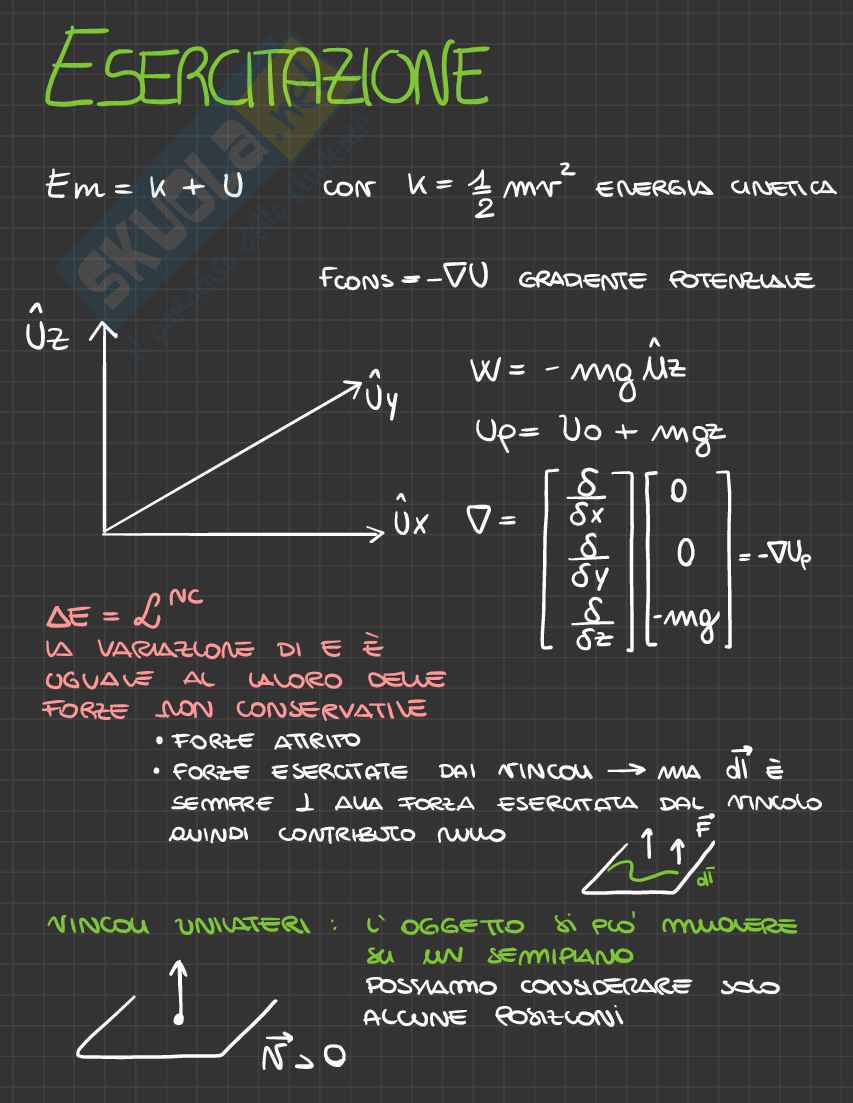 ESERCITAZIONE
SKUOLA.net
Em = K + U CON K = 1/2 mv² ENERGIA CINETICA
Fcons = -∇U GRADIENTE POTENZIALE
Ûz
Ûy
Ûx
W = - mg ûz
Up = U0 + mgz
∇ = [δ/δx δ/δy δ/δz] [0 0 -mg] = -∇Up
ΔE = ℒ^NC
LA VARIAZIONE DI E È
UGUALE AL LAVORO DELLE
FORZE NON CONSERVATIVE
• FORZE ATTRITO
• FORZE ESERCITATE DAI VINCOLI → MA dl⃗ È
SEMPRE ⊥ ALLA FORZA ESERCITATA DAL VINCOLO
QUINDI CONTRIBUTO NULLO
F⃗
dl⃗
VINCOLI UNILATERI : L'OGGETTO SI PUÒ MUOVERE
SU UN SEMIPIANO
POSSIAMO CONSIDERARE SOLO
ALCUNE POSIZIONI
N⃗ > 0